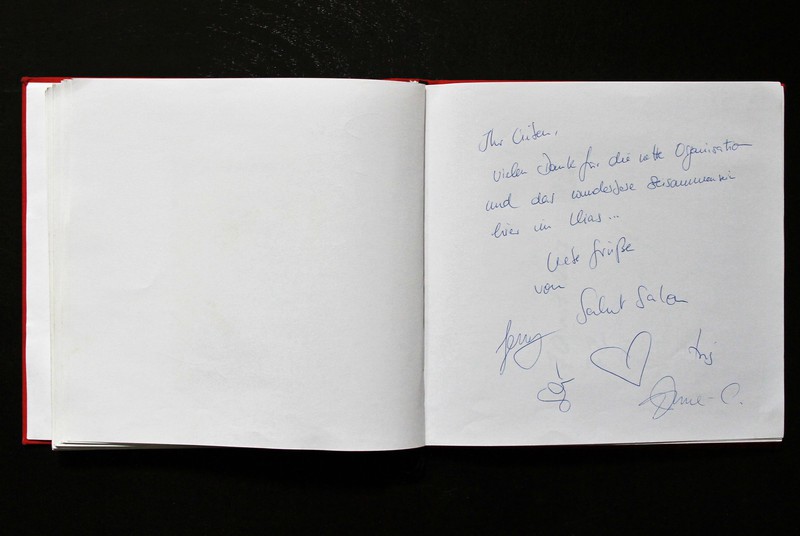 Ihr Lieben,
vielen Dank für die nette Organisation
und das wunderbare Zusammensein
hier im
Liebe Grüße
von
Salut Salon
Anne-C.